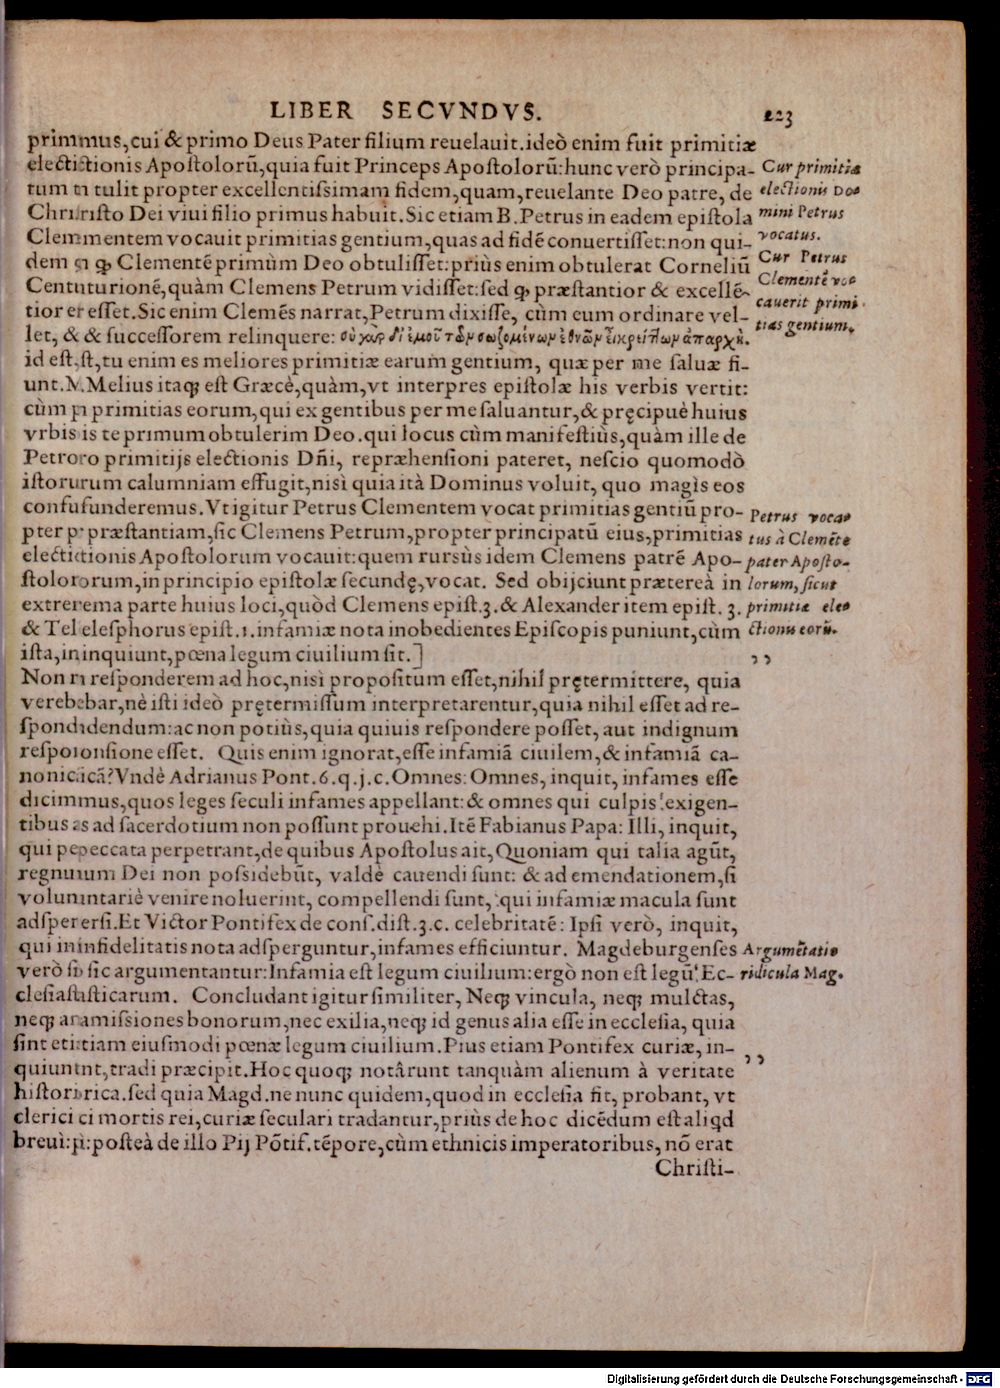 LIBER SECVNDVS. 223
primmus,cui & primo Deus Pater filium reuelauit.ideò enim fuit primitiæ
electictionis Apoſtolorũ,quia fuit Princeps Apoſtolorũ:hunc verò principa-
tum tulit propter excellentiſsimam fidem,quam,reuelante Deo patre, de
Chririſto Dei viui filio primus habuit.Sic etiam B.Petrus in eadem epiſtola
Clemmentem vocauit primitias gentium,quas ad fidẽ conuertiſſet:non qui-
dem ꝙ Clementẽ primùm Deo obtuliſſet:priùs enim obtulerat Corneliũ
Centuturionẽ,quàm Clemens Petrum vidiſſet:ſed ꝙ præſtantior & excellẽ-
tior eſſet.Sic enim Clemẽs narrat,Petrum dixiſſe, cùm eum ordinare vel-
let, & & ſucceſſorem relinquere: σὺ γὰρ δι' ἐμοῦ τῶν σωζομένων ἐθνῶν εἶ κρείττων ἀπαρχὴ.
id eſt,ſt,tu enim es meliores primitiæ earum gentium, quæ per me ſaluæ fi-
unt.M.Melius itaq; eſt Græcè,quàm,vt interpres epiſtolæ his verbis vertit:
cùm primitias eorum,qui ex gentibus per me ſaluantur,& pręcipuè huius
vrbis is te primum obtulerim Deo.qui locus cùm manifeſtiùs,quàm ille de
Petroro primitijs electionis Dñi, repræhenſioni pateret, neſcio quomodò
iſtorurum calumniam effugit,niſì quia ità Dominus voluit, quo magìs eos
confufunderemus.Vt igitur Petrus Clementem vocat primitias gentiũ pro-
pter præſtantiam,ſic Clemens Petrum,propter principatũ eius,primitias
electictionis Apoſtolorum vocauit:quem rursùs idem Clemens patrẽ Apo-
ſtolororum,in principio epiſtolæ ſecundę,vocat. Sed obijciunt prætereà in
extrerema parte huius loci,quòd Clemens epiſt.3.& Alexander item epiſt. 3.
& Tel eleſphorus epiſt.1.infamiæ nota inobedientes Epiſcopis puniunt,cùm
iſta,ininquiunt,pœna legum ciuilium ſit.]
Non reſponderem ad hoc,niſi propoſitum eſſet,nihil prętermittere, quia
verebebar,nè iſti ideò prętermiſſum interpretarentur,quia nihil eſſet ad re-
ſpondidendum:ac non potiùs,quia quiuis reſpondere poſſet, aut indignum
reſpoionſione eſſet. Quis enim ignorat,eſſe infamiã ciuilem,& infamiã ca-
nonicàcã?Vndè Adrianus Pont.6.q.j.c.Omnes: Omnes, inquit, infames eſſe
dicimmus,quos leges ſeculi infames appellant:& omnes qui culpis exigen-
tibus as ad ſacerdotium non poſſunt prouehi.Itẽ Fabianus Papa: Illi, inquit,
qui pepeccata perpetrant,de quibus Apoſtolus ait, Quoniam qui talia agũt,
regnuium Dei non poſsidebũt, valdè cauendi ſunt: & ad emendationem,ſi
volunntariè venire noluerint, compellendi ſunt, qui infamiæ macula ſunt
adſpererſi.Et Victor Pontifex de conſ.diſt.3.c. celebritatẽ: Ipſi verò, inquit,
qui ininfidelitatis nota adſperguntur,infames efficiuntur. Magdeburgenſes
verò ſic argumentantur:Infamia eſt legum ciuilium:ergò non eſt legũ Ec-
cleſiaſtaſticarum. Concludant igitur ſimiliter, Neq; vincula, neq; mulctas,
neq; aramiſsiones bonorum,nec exilia,neq; id genus alia eſſe in eccleſia, quia
ſint etitiam eiuſmodi pœnæ legum ciuilium.Pius etiam Pontifex curiæ, in-
quiuntnt,tradi præcipit.Hoc quoq; notârunt tanquàm alienum à veritate
hiſtoririca.ſed quia Magd.ne nunc quidem,quod in eccleſia fit, probant, vt
clerici ci mortis rei,curiæ ſeculari tradantur,priùs de hoc dicẽdum eſt aliqd
breui:poſteà de illo Pij Põtif.tẽpore,cùm ethnicis imperatoribus, nõ erat
Chriſti-
Cur primitiæ
electionis Do-
mini Petrus
vocatus.
Cur Petrus
Clementẽ vo-
cauerit primi
tias gentium.
Petrus voca-
tus à Clemẽte
pater Apoſto-
lorum, ſicut
primitiæ ele-
ctionis eorũ.
,,
Argumẽtatio
ridicula Mag.
,,
Digitalisierung gefördert durch die Deutsche Forschungsgemeinschaft - DFG